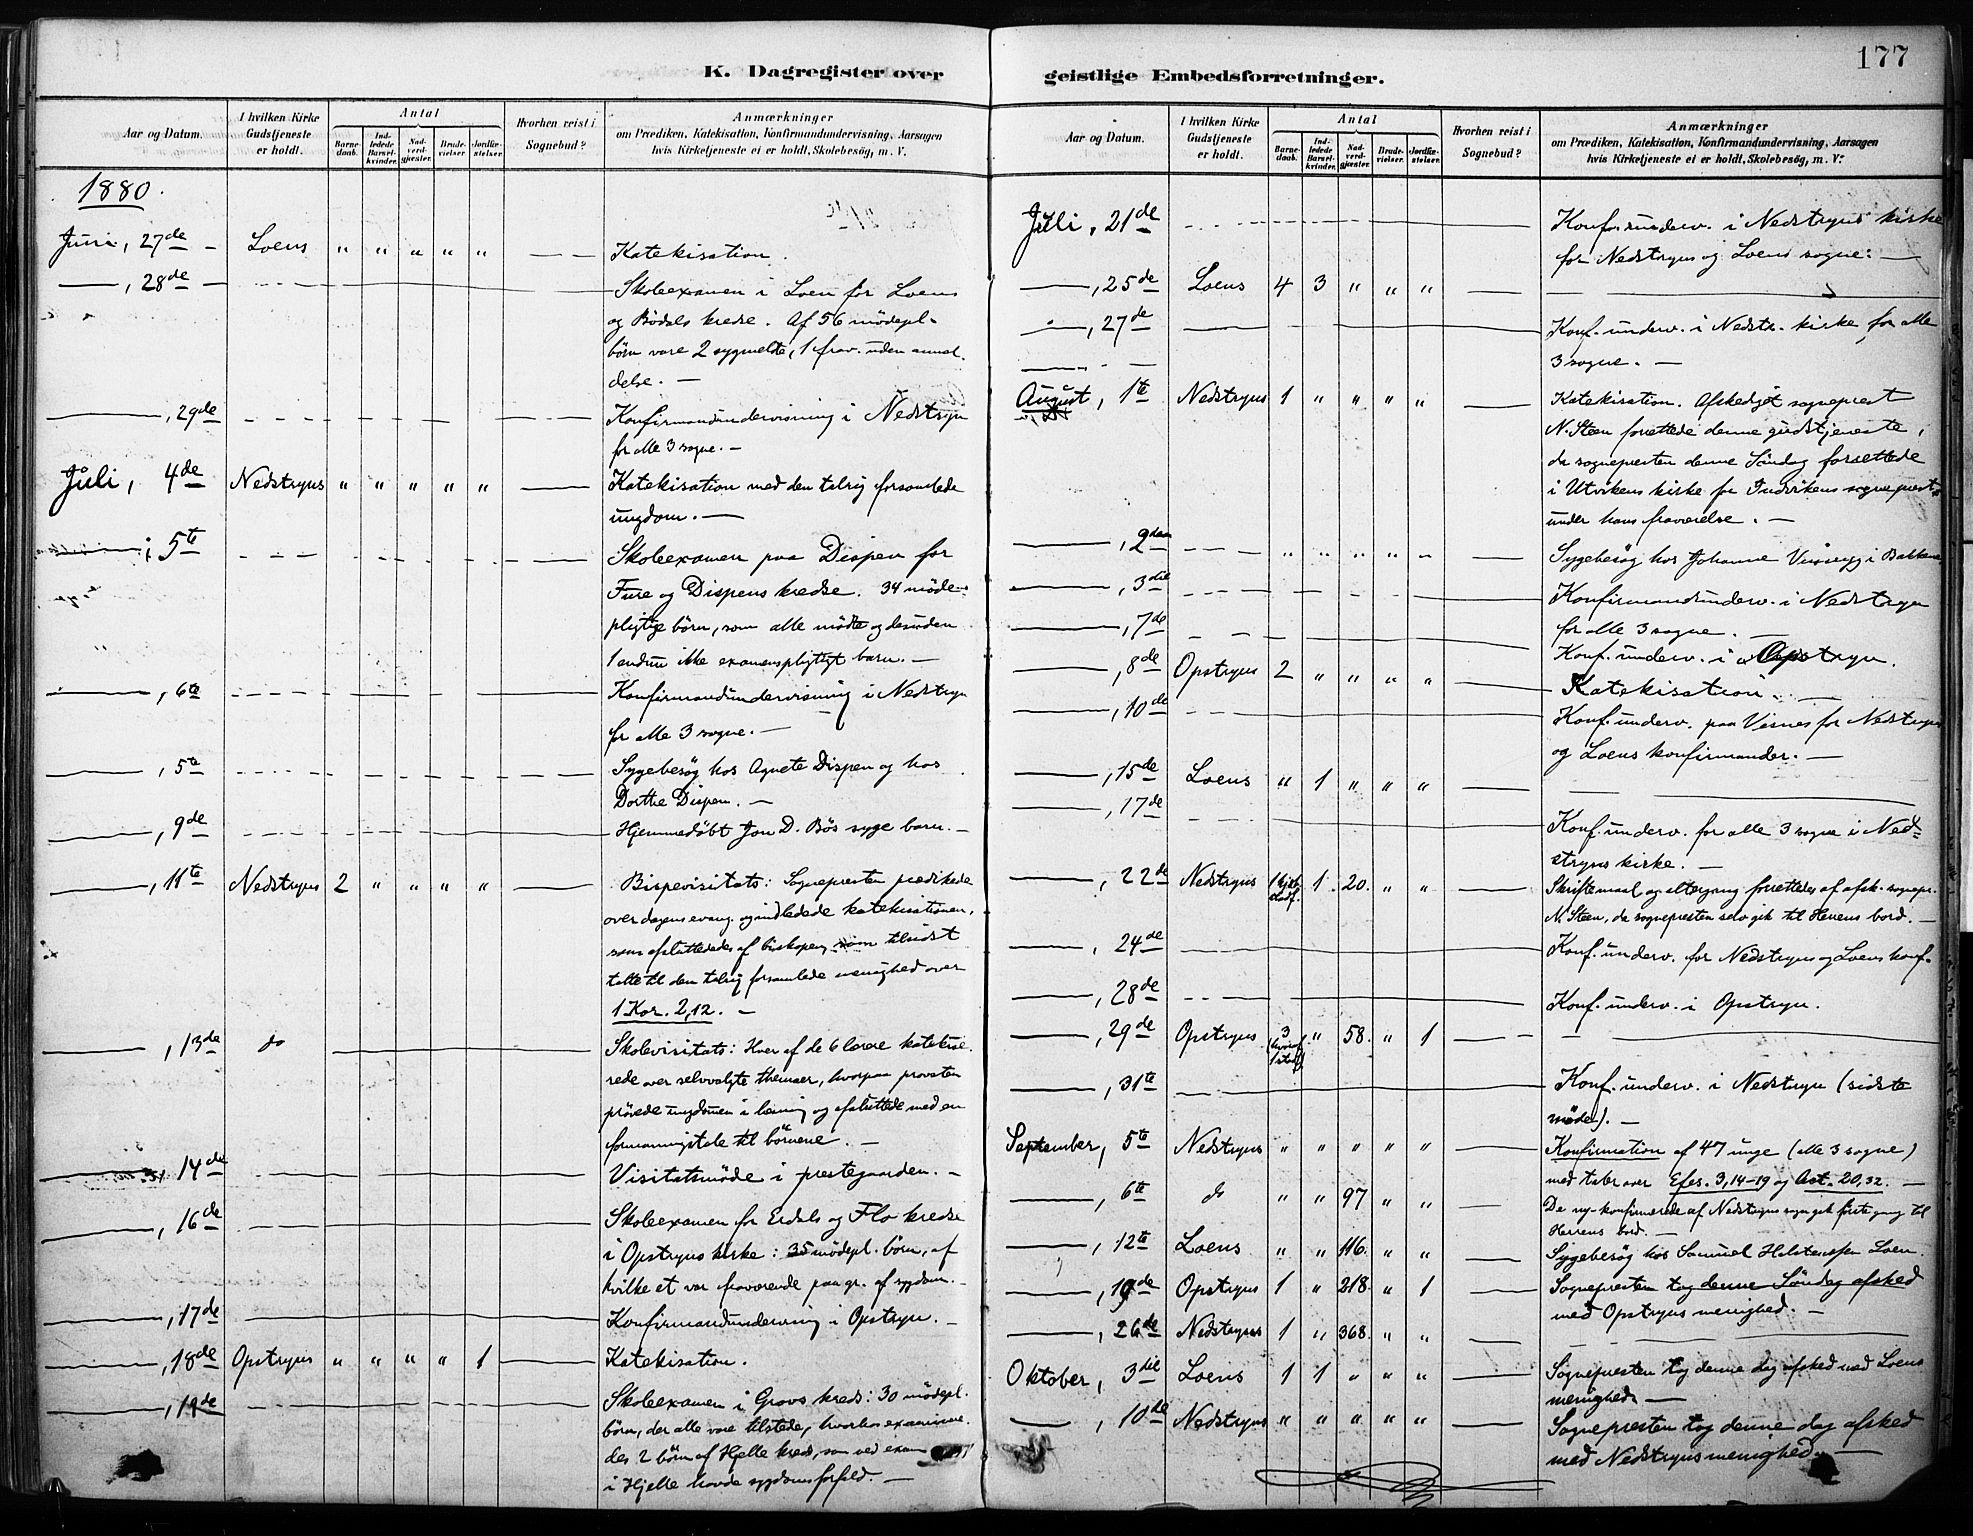 177
K. Dagregister over
geistlige Embedsforretninger.
Aar og Datum.
I hvilken Kirke Gudstjeneste er holdt.
Antal
Barnedaab.
Indledede Barselkvinder.
Nadverdgjester.
Brudevielser.
Jordfæstelser.
Hvorhen reist i Sognebud?
Anmærkninger
om Prædiken, Katekisation, Konfirmandundervisning, Aarsagen
hvis Kirketjeneste ei er holdt, Skolebesög, m. V.
1880.
Juni, 27de - Loens " " " " " Katekisation.
, 28de Skoleexamen i Loen for Loens
og Bödals kredse. Af 56 mödepl.
börn vare 2 sygmeldte, 1 frav. uden anmel-
delse. -
, 29de Konfirmandundervisning i Nedstryn
for alle 3 sogne. -
Juli, 4de Nedstryns " " " " " Katekisation med den talrig forsamlede
ungdom. -
, 5te Skoleexamen paa Dispen for
Fure og Dispens kredse. 34 möde-
pligtige börn, som alle mödte og desuden
1 endnu ikke examenspligtigt barn. -
, 6te Konfirmandundervisning i Nedstryn
for alle 3 sogne. -
, 5te Sygebesög hos Agnete Dispen og hos
Dorthe Dispen. -
, 9de Hjemmedöbt Jon D. Bös syge barn. -
, 11te Nedstryns 2 " " " " Bispevisitats: Sognepresten prædikede
over dagens evang. og indledede katekisationen,
som afsluttedes af biskopen, som tilsidst
talte til den talrig forsamlede menighed over
1 Kor. 2,12. -
, 13de do Skolevisitats: Hver af de 6 lærere katekise-
rede over selvvalgte themaer, hvorpaa provsten
prövede ungdommen i læsning og afsluttede med en
formaningstale til börnene. -
, 14de Visitatsmöde i prestegaarden. -
, 16de Skoleexamen for Erdals og Flo kredse
i Opstryns kirke: 35 mödepl. börn, af
hvilke et var fraværende paa gr. af sygdom. -
, 17de Konfirmandundervisning i Opstryn. -
, 18de Opstryns " " " " 1 Katekisation.
, 19de Skoleexamen i Grovs kreds: 30 mödepl.
börn, der alle vare tilstede, hvorhos examinere-
des 2 börn af Hjelle kreds, som ved exam
i Hjelle havde sygdomsforfald. -
Aar og Datum.
I hvilken Kirke Gudstjeneste er holdt.
Antal
Barnedaab.
Indledede Barselkvinder.
Nadverdgjester.
Brudevielser.
Jordfæstelser.
Hvorhen reist i Sognebud?
Anmærkninger
om Prædiken, Katekisation, Konfirmandundervisning, Aarsagen
hvis Kirketjeneste ei er holdt, Skolebesög, m. V.
Juli, 21de Konf.underv. i Nedstryns kirke
for Nedstryns og Loens sogne. -
, 25de Loens 4 3 " " "
, 27de Konf. underv. i Nedstr. kirke for alle
3 sogne. -
August, 1te Nedstryns 1 " " " " Katekisation. Afskediget sogneprest
N. Steen forrettede denne gudstjeneste,
da sognepresten denne Söndag forrettede
i Utvikens kirke for Indvikens sogneprest
under hans fraværelse. -
, 2den " " " " " Sygebesög hos Johanne i Bakken
, 3die Konfirmandunderv. i Nedstryn
for alle 3 sogne. -
, 7de Konf. underv. i Opstryn.
, 8de Opstryns 2 " " " " Katekisation. -
, 10de Konf. underv. paa Visnes for Nedstryns
og Loens konfirmander. -
, 15de Loens " 1 " " "
, 17de Konf. underv. for alle 3 sogne i Ned-
stryns kirke. -
, 22de Nedstryns 1 hjst.stadf. 1 20. " " Skriftemaal og altergang forrettedes af afsk. sognepr.
N. Steen, da sognepresten selv gik til Herrens bord. -
, 24de Konf. underv. for Nedstryns og Loens konf.
, 28de Konf. underv. i Opstryn.
, 29de Opstryns 3 (hvoraf 1 stadf.) " 58. " 1
, 31te Konf. underv. i Nedstryn (sidste
möde). -
September, 5te Nedstryns " " " " " Konfirmation af 47 unge (alle 3 sogne)
med taler over Efes. 3,14-19 og Act. 20,32. -
, 6te do " " 97 " " De ny-konfirmerede af Nedstryns sogn gik förste gang til
Herrens bord. -
, 12te Loens " " 116. " " Sygebesög hos Samuel Loen.
, 19de Opstryns 1 " 218. " 1 Sognepresten tog denne Söndag afsked
med Opstryns menighed. -
, 26de Nedstryns 1 " 368. " "
Oktober, 3die Loens 1 1 " " " Sognepresten tog denne dag afsked med Loens
menighed. -
, 10de Nedstryns " " " " " Sognepresten tog denne dag afsked
med Nedstryns menighed. -